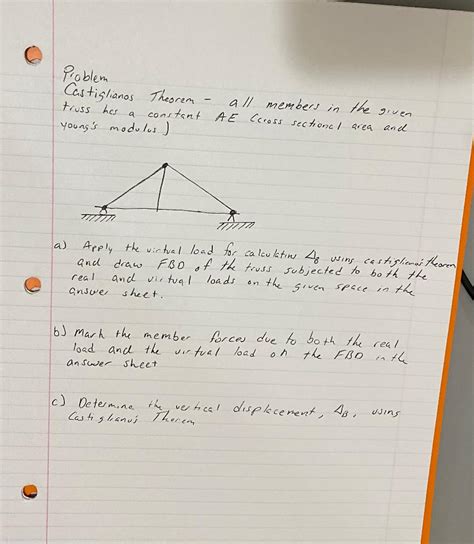 Problem
Castiglianos Theorem - all members in the given
truss has a constant AE (cross sectional area and
young's modulus)
a) Apply the virtual load for calculating ΔB using castigliano's theorem
and draw FBD of the truss subjected to both the
real and virtual loads on the given space in the
answer sheet.
b) Mark the member forces due to both the real
load and the virtual load on the FBD in the
answer sheet
c) Determine the vertical displacement, ΔB, using
Castigliano's Theorem